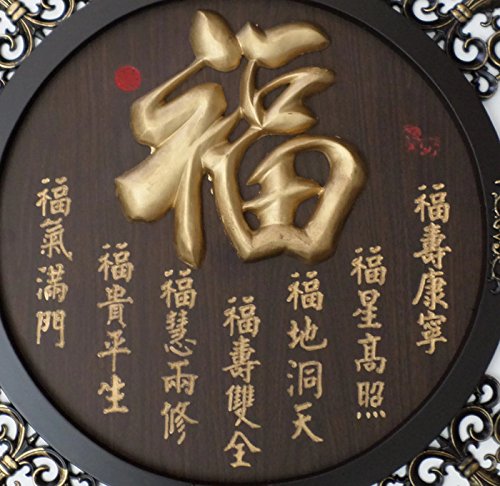 福
福壽康寧
福星高照
福地洞天
福壽雙全
福慧兩修
福貴平生
福氣滿門